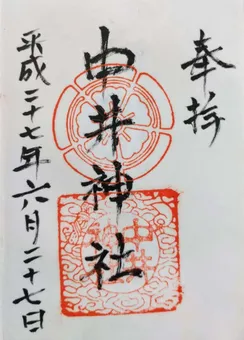 奉拝
中井神社
平成二十七年六月二十七日